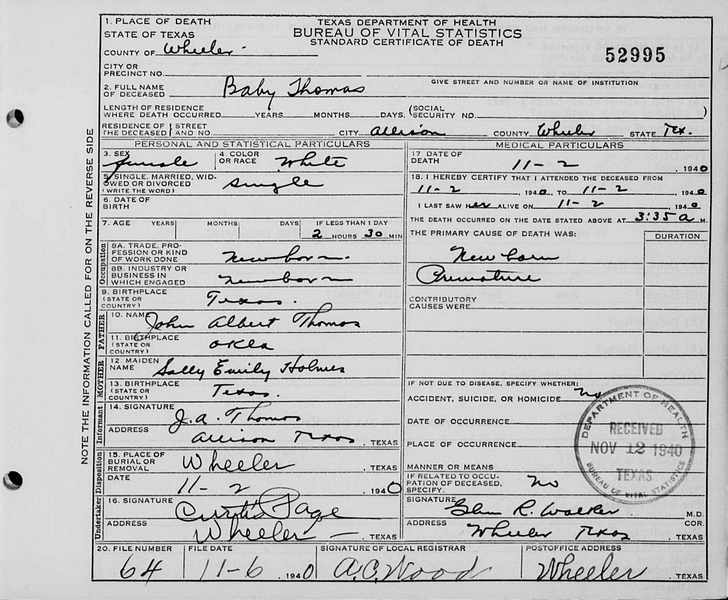 1. PLACE OF DEATH
STATE OF TEXAS
COUNTY OF Wheeler
TEXAS DEPARTMENT OF HEALTH
BUREAU OF VITAL STATISTICS
STANDARD CERTIFICATE OF DEATH
52995
CITY OR
PRECINCT NO.
GIVE STREET AND NUMBER OR NAME OF INSTITUTION
2. FULL NAME
OF DECEASED Baby Thomas
LENGTH OF RESIDENCE
WHERE DEATH OCCURRED YEARS MONTHS DAYS. (SOCIAL
SECURITY NO. )
RESIDENCE OF (STREET
THE DECEASED (AND NO. CITY Allison COUNTY Wheeler STATE Tex.
PERSONAL AND STATISTICAL PARTICULARS
3. SEX female 4. COLOR
OR RACE White
5. SINGLE, MARRIED, WID-
OWED OR DIVORCED
(WRITE THE WORD) single
6. DATE OF
BIRTH
7. AGE YEARS MONTHS DAYS IF LESS THAN 1 DAY
2 HOURS 30 MIN
Occupation
8A. TRADE, PRO-
FESSION OR KIND
OF WORK DONE newborn
8B. INDUSTRY OR
BUSINESS IN
WHICH ENGAGED newborn
9. BIRTHPLACE
(STATE OR
COUNTRY) Texas.
FATHER
10. NAME John Albert Thomas
11. BIRTHPLACE
(STATE OR
COUNTRY) Okla
MOTHER
12. MAIDEN
NAME Sally Emily Holmes
13. BIRTHPLACE
(STATE OR
COUNTRY) Texas.
Informant
14. SIGNATURE J. A. Thomas
ADDRESS Allison Texas , TEXAS
Undertaker Disposition
15. PLACE OF
BURIAL OR
REMOVAL Wheeler , TEXAS
DATE 11-2 1940
16. SIGNATURE Curtis Page
ADDRESS Wheeler , TEXAS
MEDICAL PARTICULARS
17 DATE OF
DEATH 11-2 1940
18. I HEREBY CERTIFY THAT I ATTENDED THE DECEASED FROM
11-2 1940, TO 11-2 1940
I LAST SAW her ALIVE ON 11-2 1940
THE DEATH OCCURRED ON THE DATE STATED ABOVE AT 3:35 a M.
THE PRIMARY CAUSE OF DEATH WAS: DURATION
New born
Premature
CONTRIBUTORY
CAUSES WERE:
IF NOT DUE TO DISEASE, SPECIFY WHETHER:
ACCIDENT, SUICIDE, OR HOMICIDE no
DATE OF OCCURRENCE
PLACE OF OCCURRENCE
MANNER OR MEANS
IF RELATED TO OCCU-
PATION OF DECEASED,
SPECIFY. no
SIGNATURE Glen R. Walker M.D.
COR.
ADDRESS Wheeler Texas , TEXAS
DEPARTMENT OF HEALTH
RECEIVED
NOV 12 1940
TEXAS
BUREAU OF VITAL STATISTICS
20. FILE NUMBER FILE DATE SIGNATURE OF LOCAL REGISTRAR POSTOFFICE ADDRESS
64 11-6 1940 A. C. Wood Wheeler , TEXAS
NOTE THE INFORMATION CALLED FOR ON THE REVERSE SIDE